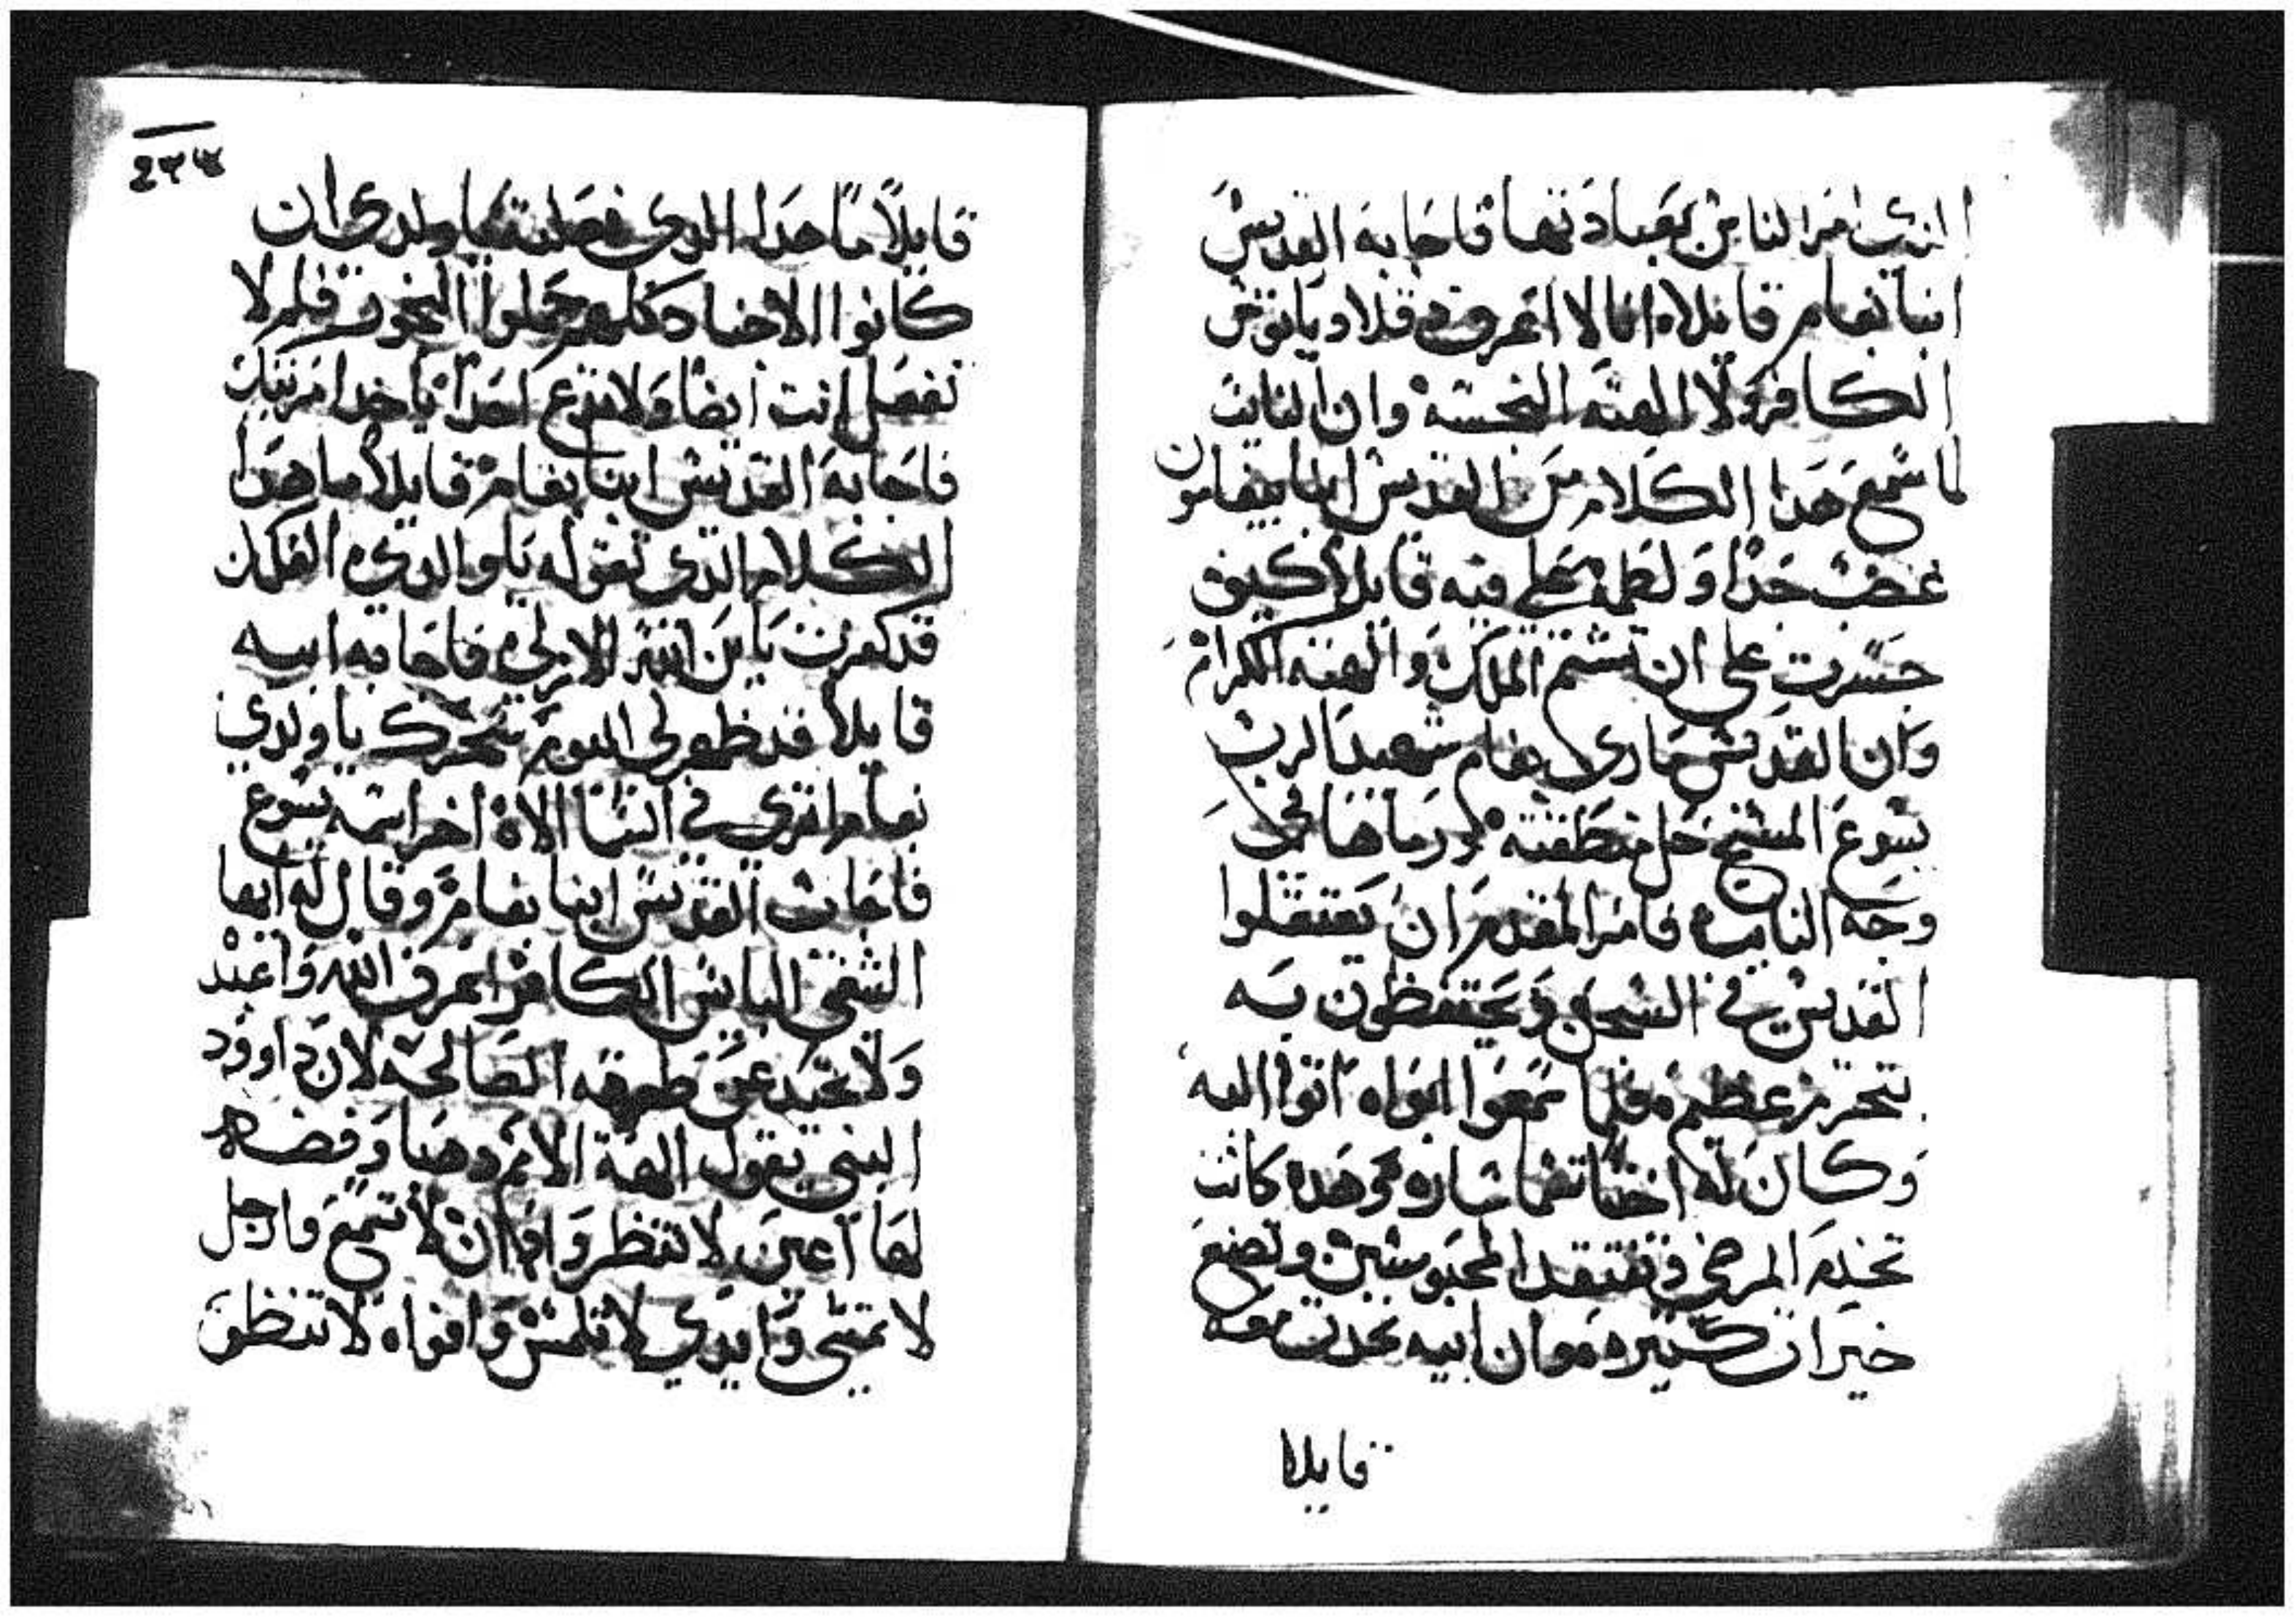 الذي امر الناس بعبادتها فاجابه القديس
انبا بفام قايلاه انا لا اعرف دقلاديانوس
الكافر ولا الهته النجسه وان النايب
لما سمع هدا الكلام من القديس انبا بيفامون
غضب جدا ولطمه على فيه قايلا كيف
جسرت على ان تشتم الملك والهته الكرام
وان القديس ماري بفام شهيد الرب
يسوع المسيح حل منطقته ورماها في
وجه النايب فامر المقدم ان يعتقلوا
القديس في السجن ويحتفظون به
بتحرز عظيم فلما سمعوا ابواه اتوا اليه
وكان له اختا تسما ساره وهده كانت
تخدم المرضى وتفتقد المحبوسين وتصنع
خيرات كثيره وان ابيه تحدت معه
قايلا
قايلا ما هدا الدي فعلته يا ولدي ان
كانوا الاجناد كلهم حملوا البخور فلم لا
تفعل انت ايضا ولا تدع احدا ياخد مرتبتك
فاجابه القديس انبا بفام قايلا ما هدا
الكلام الدي تقوله يا والدي العلك
قد كفرت يا بن الله الازلي فاجابه ابيه
قايلا قد ظهر لي اليوم سحرك يا ولدي
بفام اترى في السما الاه اخر اسمه يسوع
فاجاب القديس انبا بفام وقال له ايها
الشقي البايس الكافر اعرف الله واعبد
ولا تحيد عن طرقه الصالحه لان داوود
النبي يقول الهة الامم دهبا وفضه
لها اعين لا تنظر وادان لا تسمع وارجل
لا تمشي وايدي لا تلمس وافواه لا تنطق